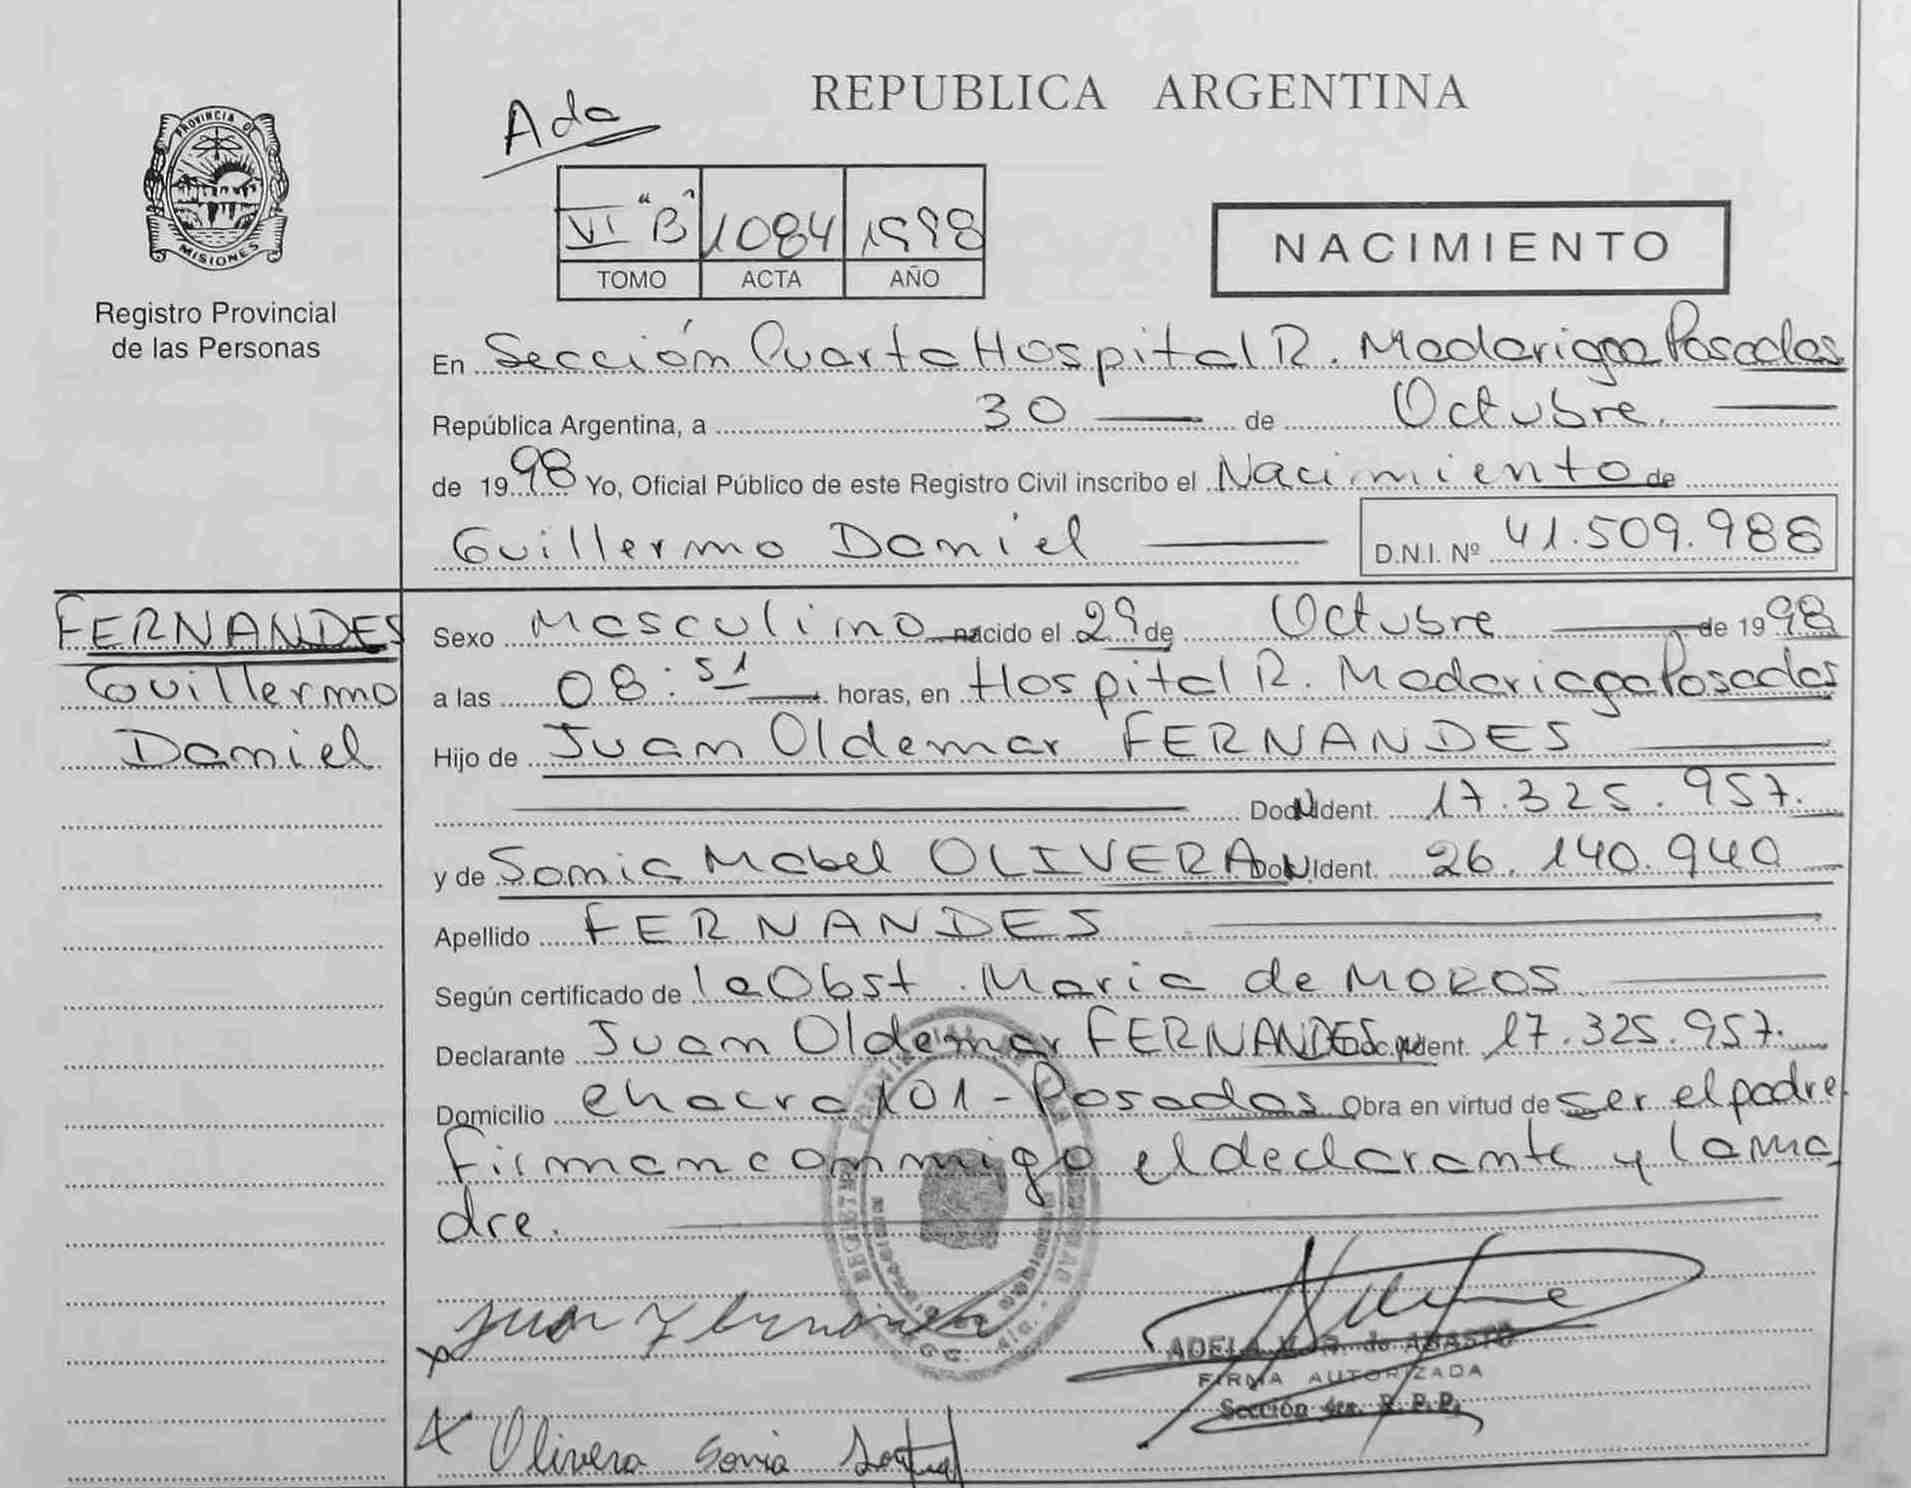 REPUBLICA ARGENTINA
Ada
PROVINCIA DE
MISIONES
Registro Provincial
de las Personas
VI "B" 1084 1998
TOMO ACTA AÑO
NACIMIENTO
En Sección Cuarta Hospital R. Madariaga Posadas
República Argentina, a 30 de Octubre.
de 1998 Yo, Oficial Público de este Registro Civil inscribo el Nacimiento de
Guillermo Daniel D.N.I. Nº 41.509.988
FERNANDES
Guillermo
Daniel
Sexo Masculino nacido el 29 de Octubre de 1998
a las 08:51 horas, en Hospital R. Madariaga Posadas
Hijo de Juan Oldemar FERNANDES
Doc. Ident. 17.325.957.
y de Sonia Mabel OLIVERA Doc. Ident. 26.140.940
Apellido FERNANDES
Según certificado de la Obst. Maria de MOROS
Declarante Juan Oldemar FERNANDES Doc. Ident. 17.325.957.
Domicilio chacra 101 - Posadas Obra en virtud de ser el padre.
Firman conmigo el declarante y la ma
dre.
ADELA de ABASTO
FIRMA AUTORIZADA
Sección 4ta. R. P. P.
x Juan
x Olivera Sonia